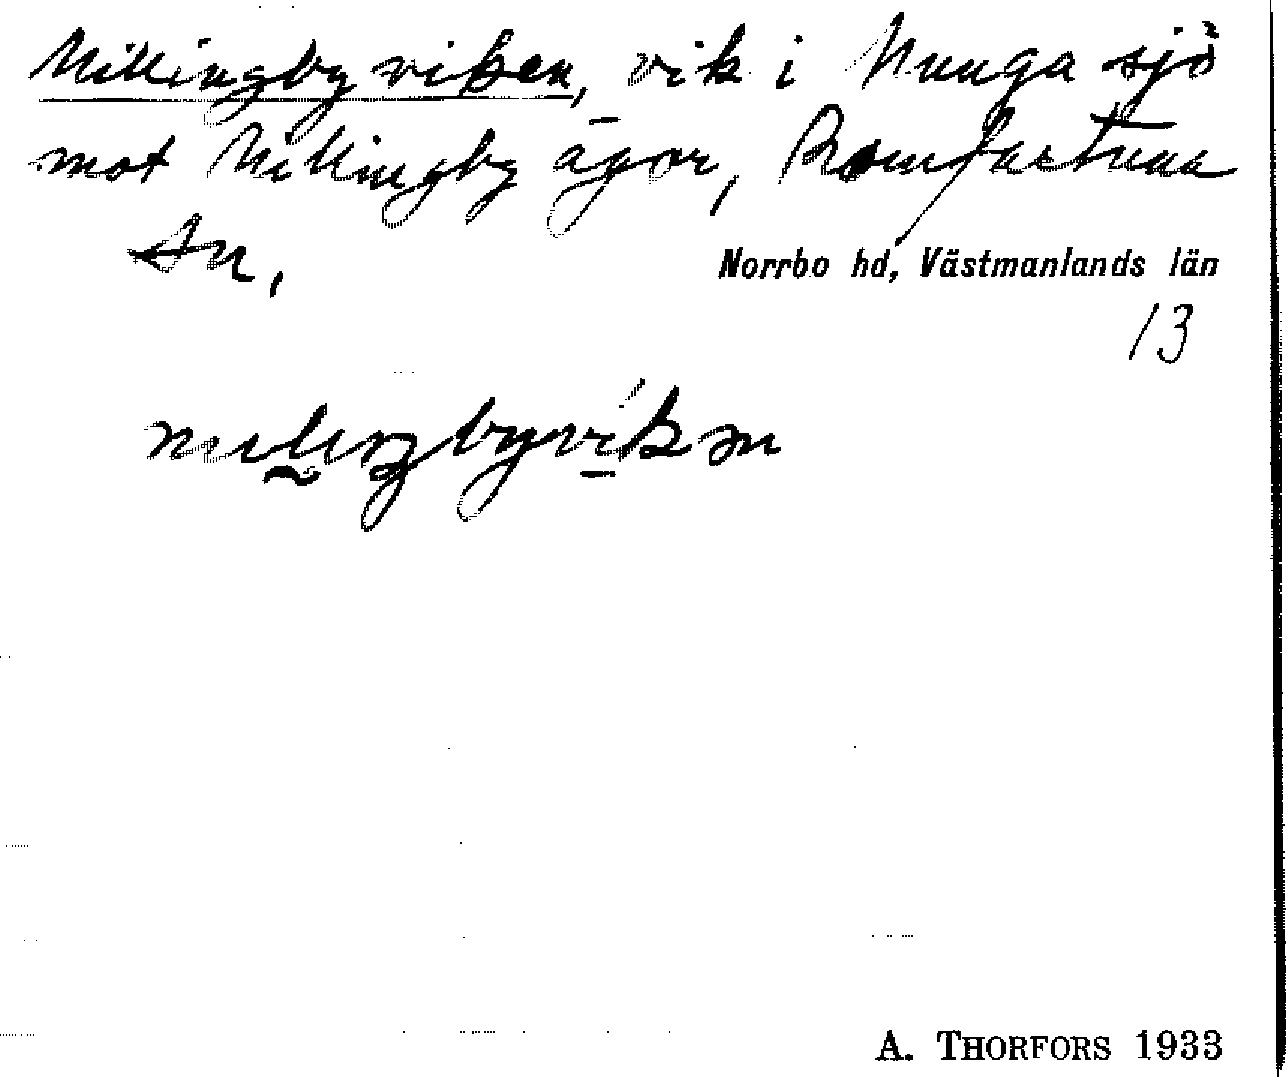 Millingbyviken, vik i Nunga sjö
mot Millingby ägor, Romfartuna
sn,
Norrbo hd, Västmanlands län
13
A. THORFORS 1933